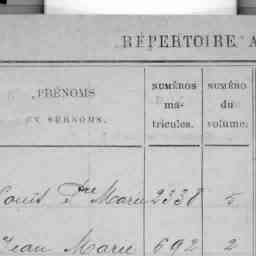 RÉPERTOIRE A
PRÉNOMS
EN SURNOMS.
NUMÉROS
ma-
tricules.
NUMÉRO
du
volume.
Louis Fçs Marie 2338 5
Jean Marie 692 2